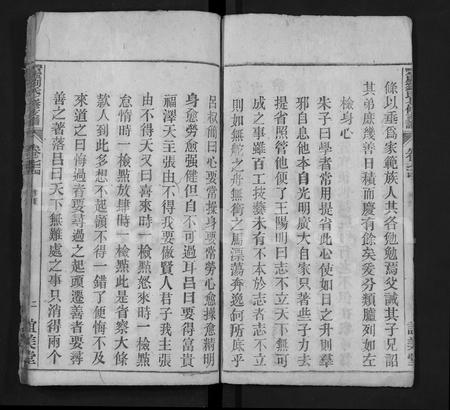 條以垂為家範族人其各勉勵焉父誡其子兄詔
其弟庶幾善日積而慶有餘矣爰分類臚列如左
檢身心
朱子曰學者常用提省此心使如日之升則羣
邪自息他本自光明廣大自家只著些子力去
提省照管他便了王陽明曰志不立天下無可
成之事雖百工技藝未有不本於志者志不立
則如無舵之舟無銜之馬漂蕩奔逸何所底乎
呂叔簡曰心要常操身要常勞心愈操愈精明
身愈勞愈強健但自不可過耳呂曰要得富貴
福澤天主張由不得我要做賢人君子我主張
由不得天又曰喜來時一檢點怒來時一檢點
怠惰時一檢點放肆時一檢點此是省察大條
款人到此多想不起顧不得一錯了便悔不及
來道之曰悔過者要尋過之起頭遷善者要尋
善之著落呂曰天下無難處之事只消得兩個
卷二
二
誼美堂